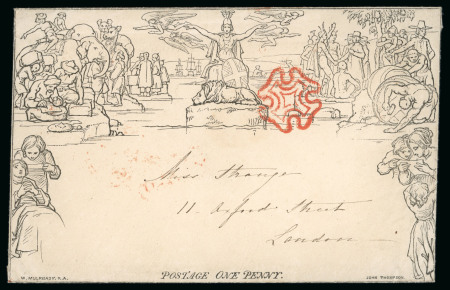 Miss Strange
11. Oxford Street
London
POSTAGE ONE PENNY.
W. MULREADY, R.A.
JOHN THOMPSON